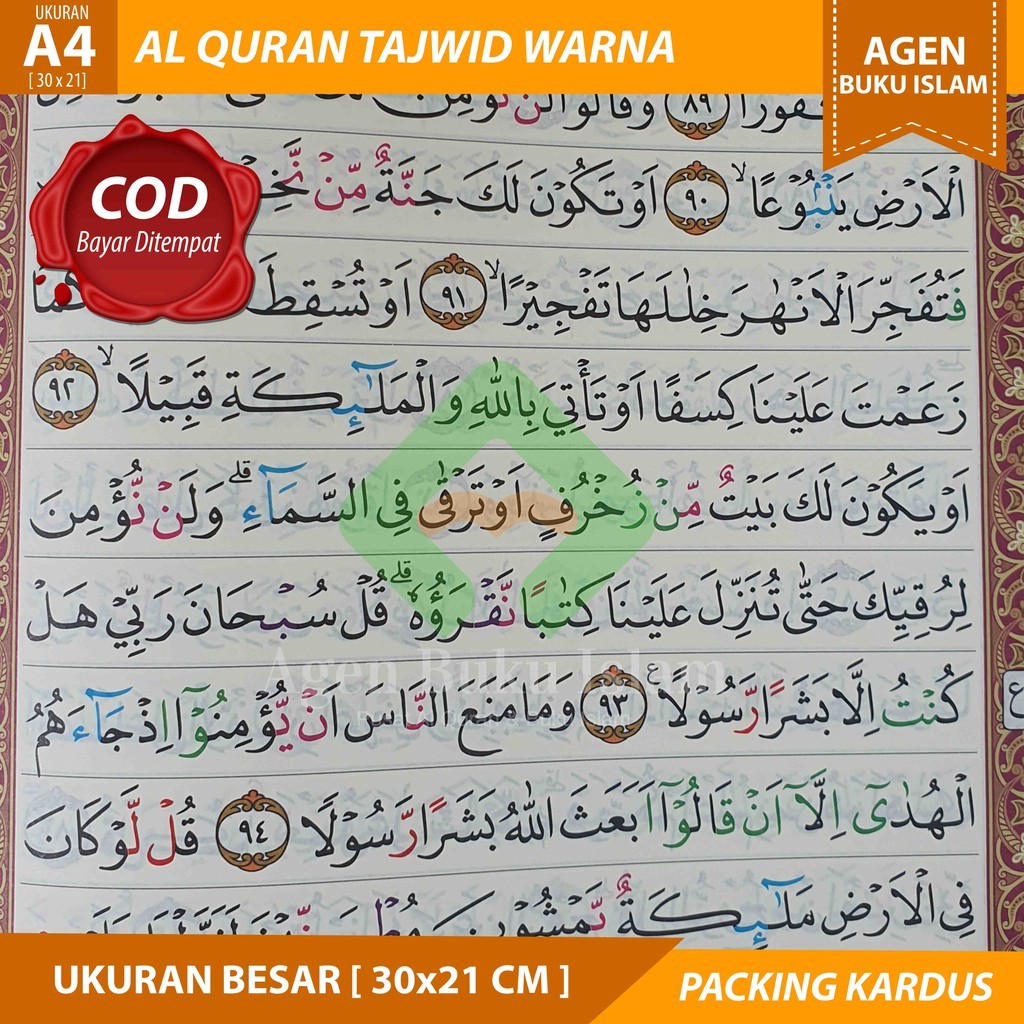 UKURAN
A4
[ 30 x 21]
AL QURAN TAJWID WARNA
AGEN
BUKU ISLAM
COD
Bayar Ditempat
وَقَالُوْا لَنْ نُّؤْمِنَ ٨٩
الْاَرْضِ يَنْۢبُوْعًاۙ ٩٠ اَوْ تَكُوْنَ لَكَ جَنَّةٌ مِّنْ نَّخِ
فَتُفَجِّرَ الْاَنْهٰرَ خِلٰلَهَا تَفْجِيْرًاۙ ٩١ اَوْ تُسْقِطَ كَمَا
زَعَمْتَ عَلَيْنَا كِسَفًا اَوْ تَأْتِيَ بِاللّٰهِ وَالْمَلٰۤىِٕكَةِ قَبِيْلًاۙ ٩٢
اَوْ يَكُوْنَ لَكَ بَيْتٌ مِّنْ زُخْرُفٍ اَوْ تَرْقٰى فِى السَّمَاۤءِۗ وَلَنْ نُّؤْمِنَ
لِرُقِيِّكَ حَتّٰى تُنَزِّلَ عَلَيْنَا كِتٰبًا نَّقْرَؤُهٗۗ قُلْ سُبْحَانَ رَبِّيْ هَلْ
كُنْتُ اِلَّا بَشَرًا رَّسُوْلًا ࣖ ٩٣ وَمَا مَنَعَ النَّاسَ اَنْ يُّؤْمِنُوْٓا اِذْ جَاۤءَهُمُ
الْهُدٰىٓ اِلَّآ اَنْ قَالُوْٓا اَبَعَثَ اللّٰهُ بَشَرًا رَّسُوْلًا ٩٤ قُلْ لَّوْ كَانَ
فِى الْاَرْضِ مَلٰۤىِٕكَةٌ يَّمْشُوْنَ
Agen Buku Islam
ع
UKURAN BESAR [ 30x21 CM ]
PACKING KARDUS